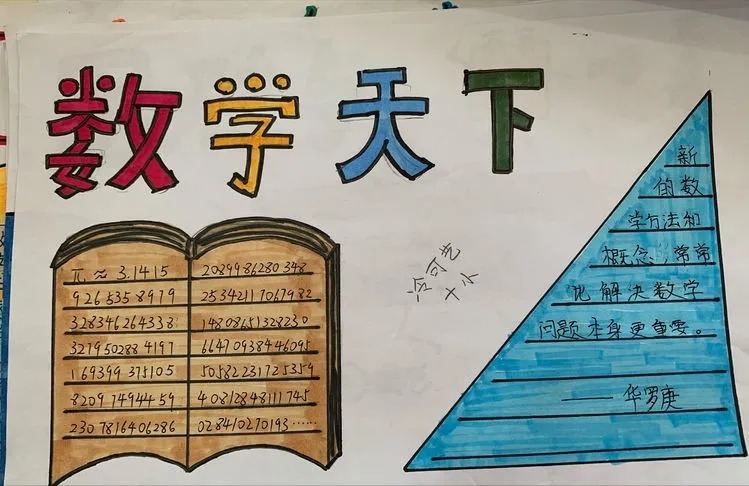 数学天下
π ≈ 3.1415
9265358979
328346264338
3279502884197
169399375105
8209 74944 59
230 7816406286
20899 86280 348
2534211 7067982
14808651328230
66470938446095
50582231725359
4 0812848111745
028410270193……
新
的数
学方法和
概念，常常
比解决数学
问题本身更重要。
—— 华罗庚